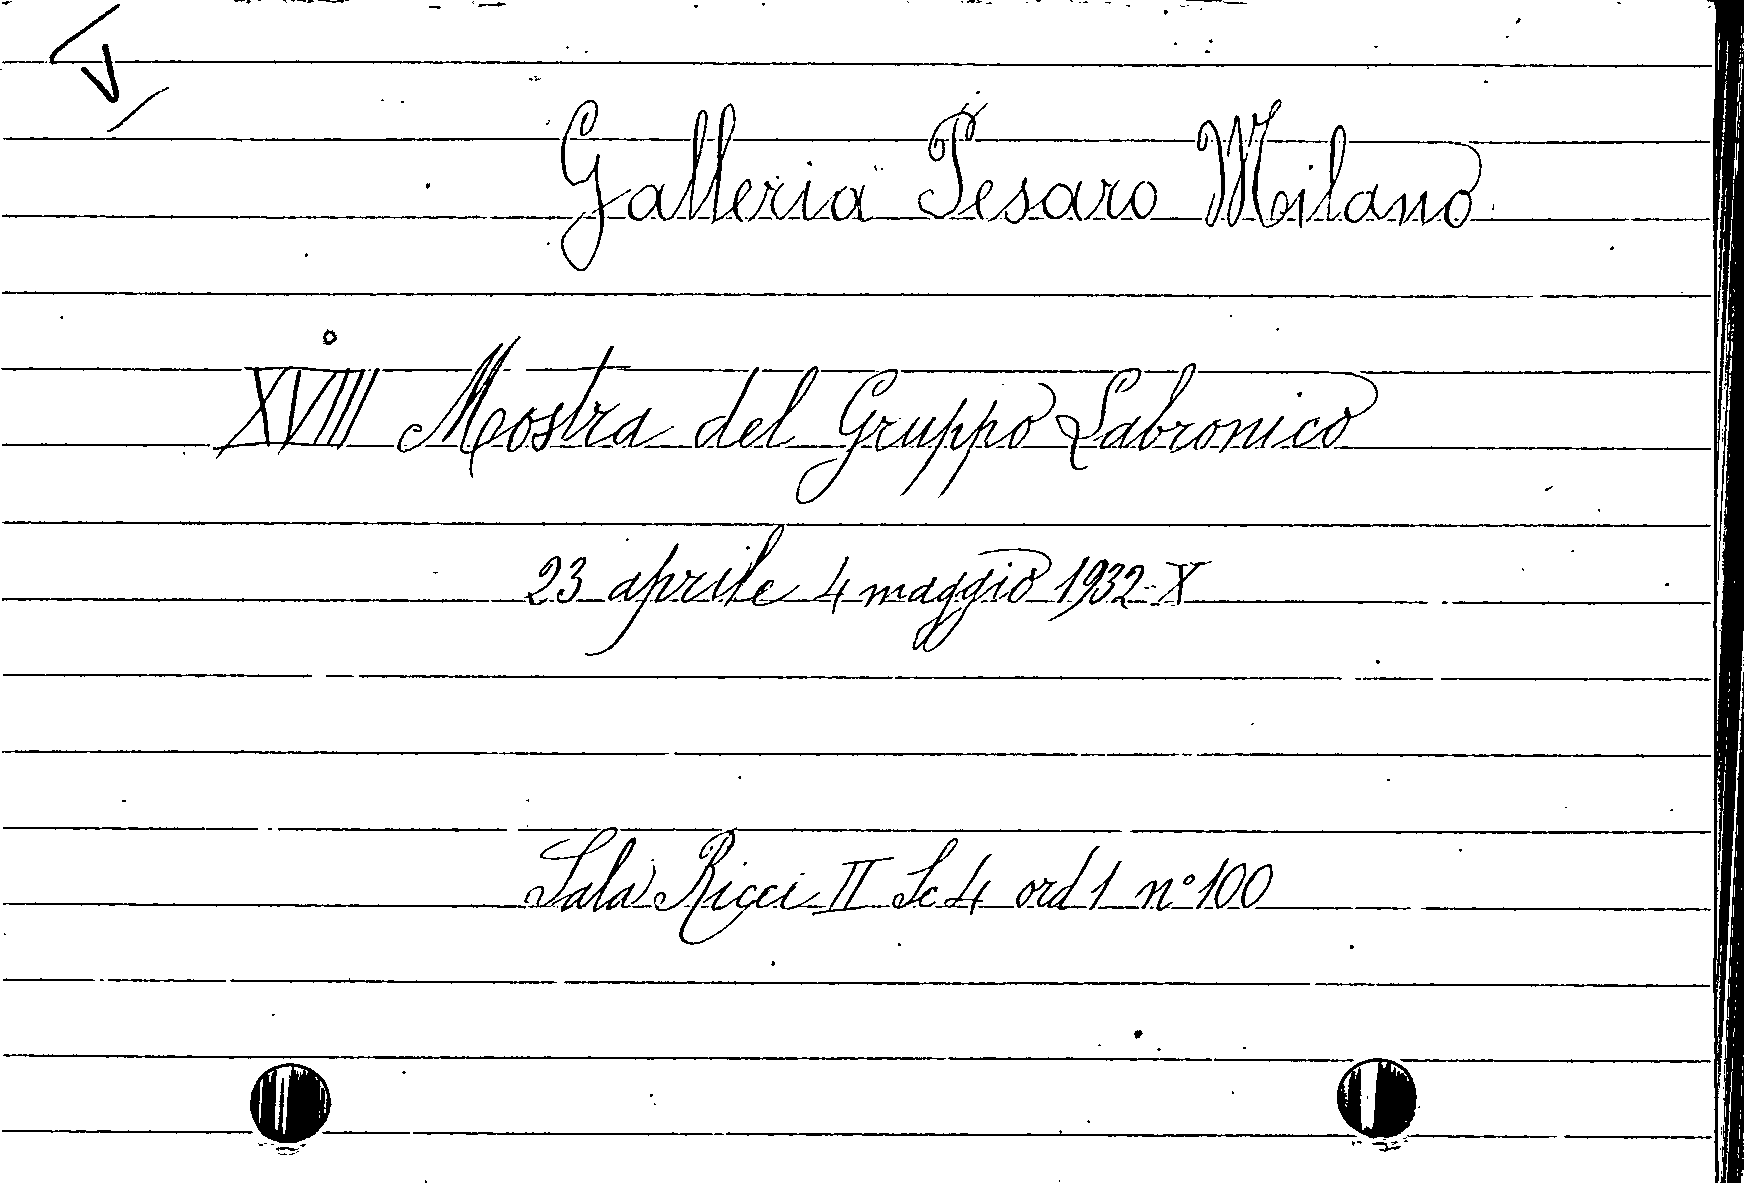 Galleria Pesaro Milano
XVIII° Mostra del Gruppo Labronico
23 aprile 4 maggio 1932 X
Sala Ricci II Sc 4 ord 1 n° 100